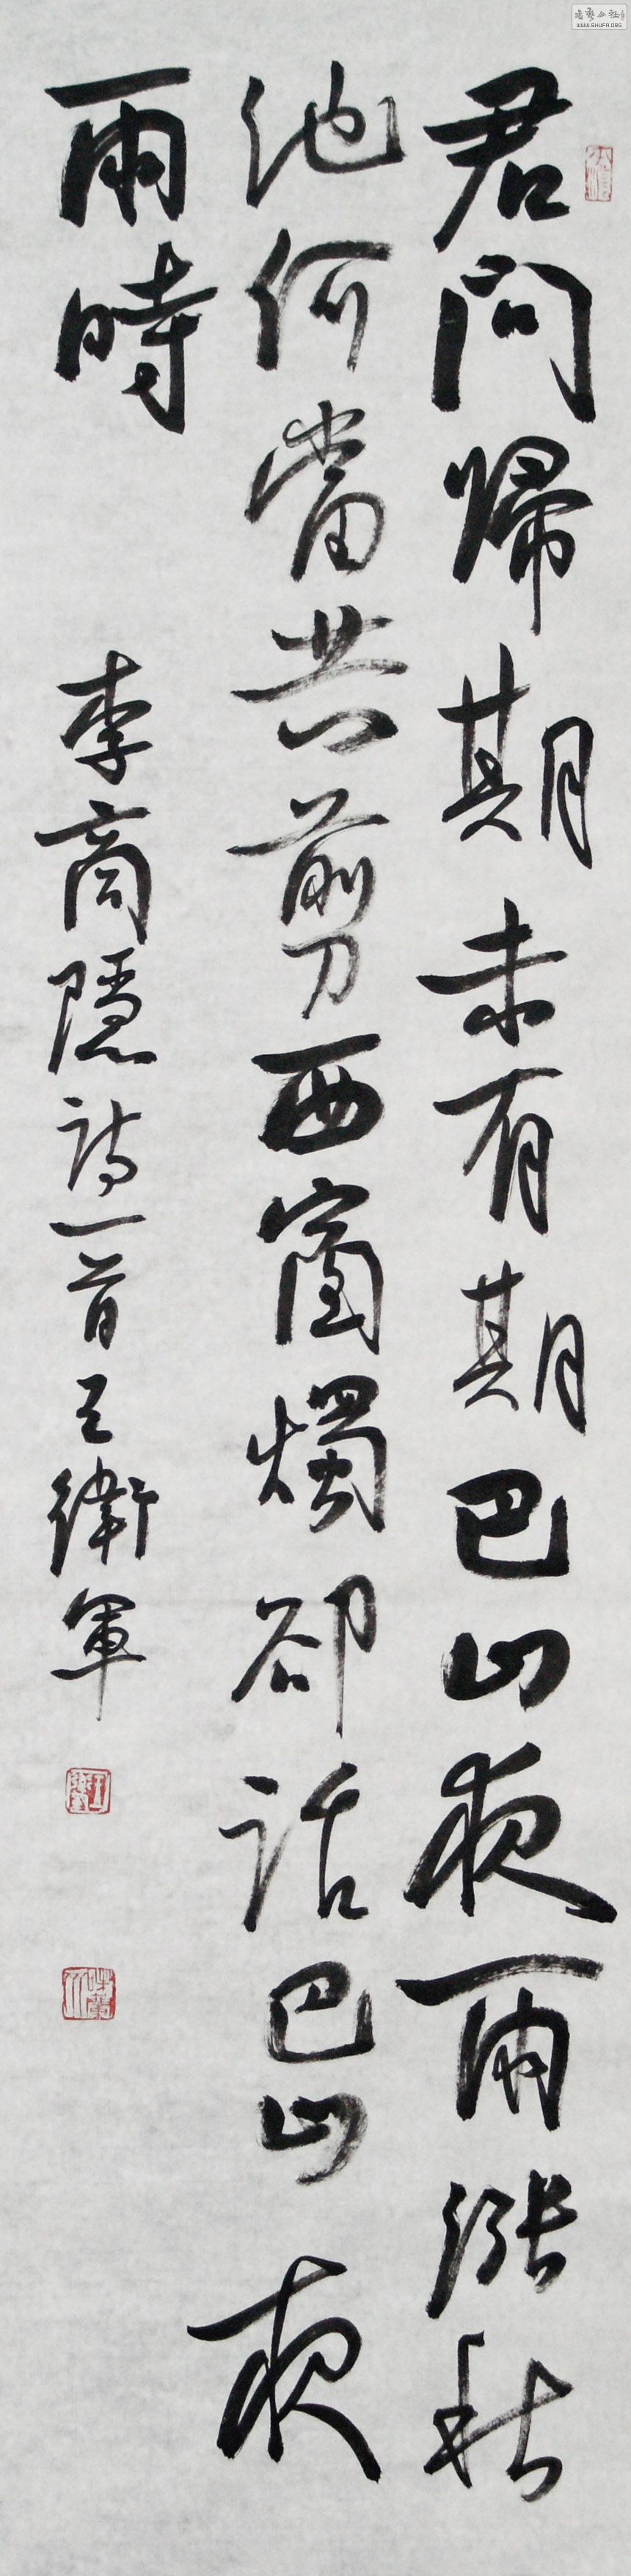 君問歸期未有期巴山夜雨漲秋
池何當共剪西窗燭却話巴山夜
雨時
李商隱詩一首王衛軍
WWW.SHUFA.ORG